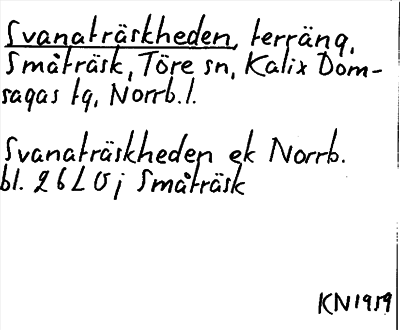 Svanaträskheden, terräng,
Småträsk, Töre sn, Kalix Dom-
sagas tg, Norrb.l.
Svanaträskheden ek Norrb.
bl. 26 L U j Småträsk
KN 1959